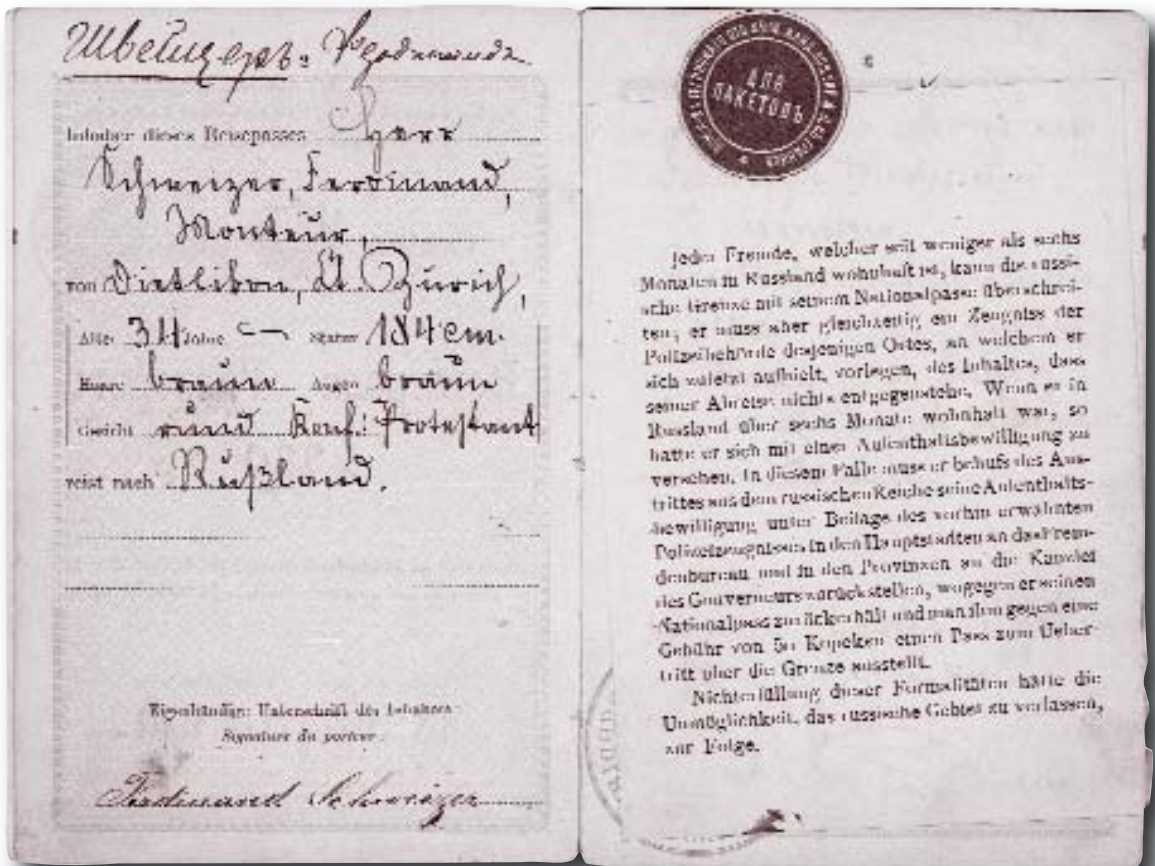 Швейцеръ: Фердинандъ
Inhaber dieses Reisepasses Herr
Schweizer, Ferdinand,
Monteur,
von Dietlikon, Kt. Zürich,
Alter 34 Jahre Statur 184 cm.
Haare braun Augen braun
Gesicht rund Konf: Protestant
reist nach Rußland.
Eigenhändige Unterschrift des Inhabers
Signature du porteur
Ferdinand Schweizer
ДЛЯ
ПАКЕТОВЪ
Jeder Fremde, welcher seit weniger als sechs
Monaten in Russland wohnhaft ist, kann die russi-
sche Grenze mit seinem Nationalpasse überschrei-
ten; er muss aber gleichzeitig ein Zeugniss der
Polizeibehörde desjenigen Ortes, an welchem er
sich zuletzt aufhielt, vorlegen, des Inhaltes, dass
seiner Abreise nichts entgegenstehe. Wenn er in
Russland über sechs Monate wohnhaft war, so
hatte er sich mit einer Aufenthaltsbewilligung zu
versehen. In diesem Falle muss er behufs des Aus-
trittes aus dem russischen Reiche seine Aufenthalts-
bewilligung unter Beilage des vorhin erwähnten
Polizeizeugnisses in den Hauptstädten an das Frem-
denbureau und in den Provinzen an die Kanzlei
des Gouverneurs zurückstellen, wogegen er seinen
Nationalpass zurückerhält und man ihm gegen eine
Gebühr von 50 Kopeken einen Pass zum Ueber-
tritt über die Grenze ausstellt.
Nichterfüllung dieser Formalitäten hätte die
Unmöglichkeit, das russische Gebiet zu verlassen,
zur Folge.